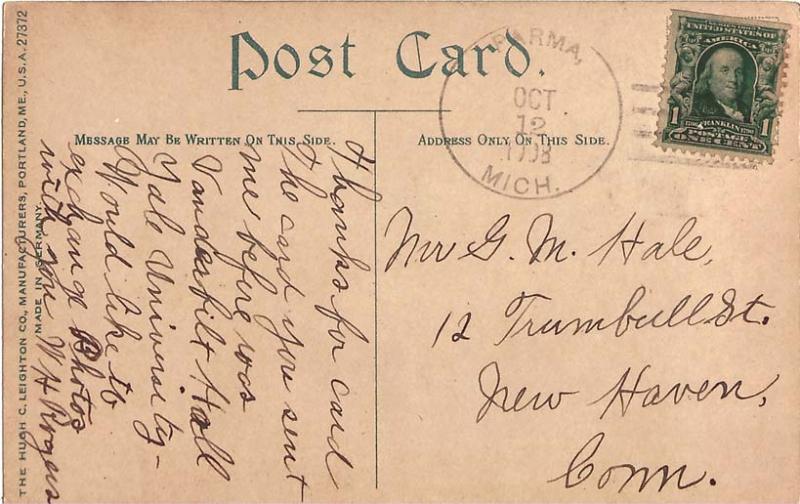 Post Card.
MESSAGE MAY BE WRITTEN ON THIS SIDE.
ADDRESS ONLY ON THIS SIDE.
PARMA,
OCT
12
1908
MICH.
UNITED STATES OF
AMERICA
1
FRANKLIN
1
POSTAGE
ONE CENT
Thanks for card
The card you sent
me before was
Vanderbilt Hall
Yale University-
Would like to
exchange Photos
with you W H Rogers
Mr G. M. Hale,
12 Trumbull St.
New Haven,
Conn.
THE HUGH C. LEIGHTON CO., MANUFACTURERS, PORTLAND, ME., U.S.A. 27372
MADE IN GERMANY.